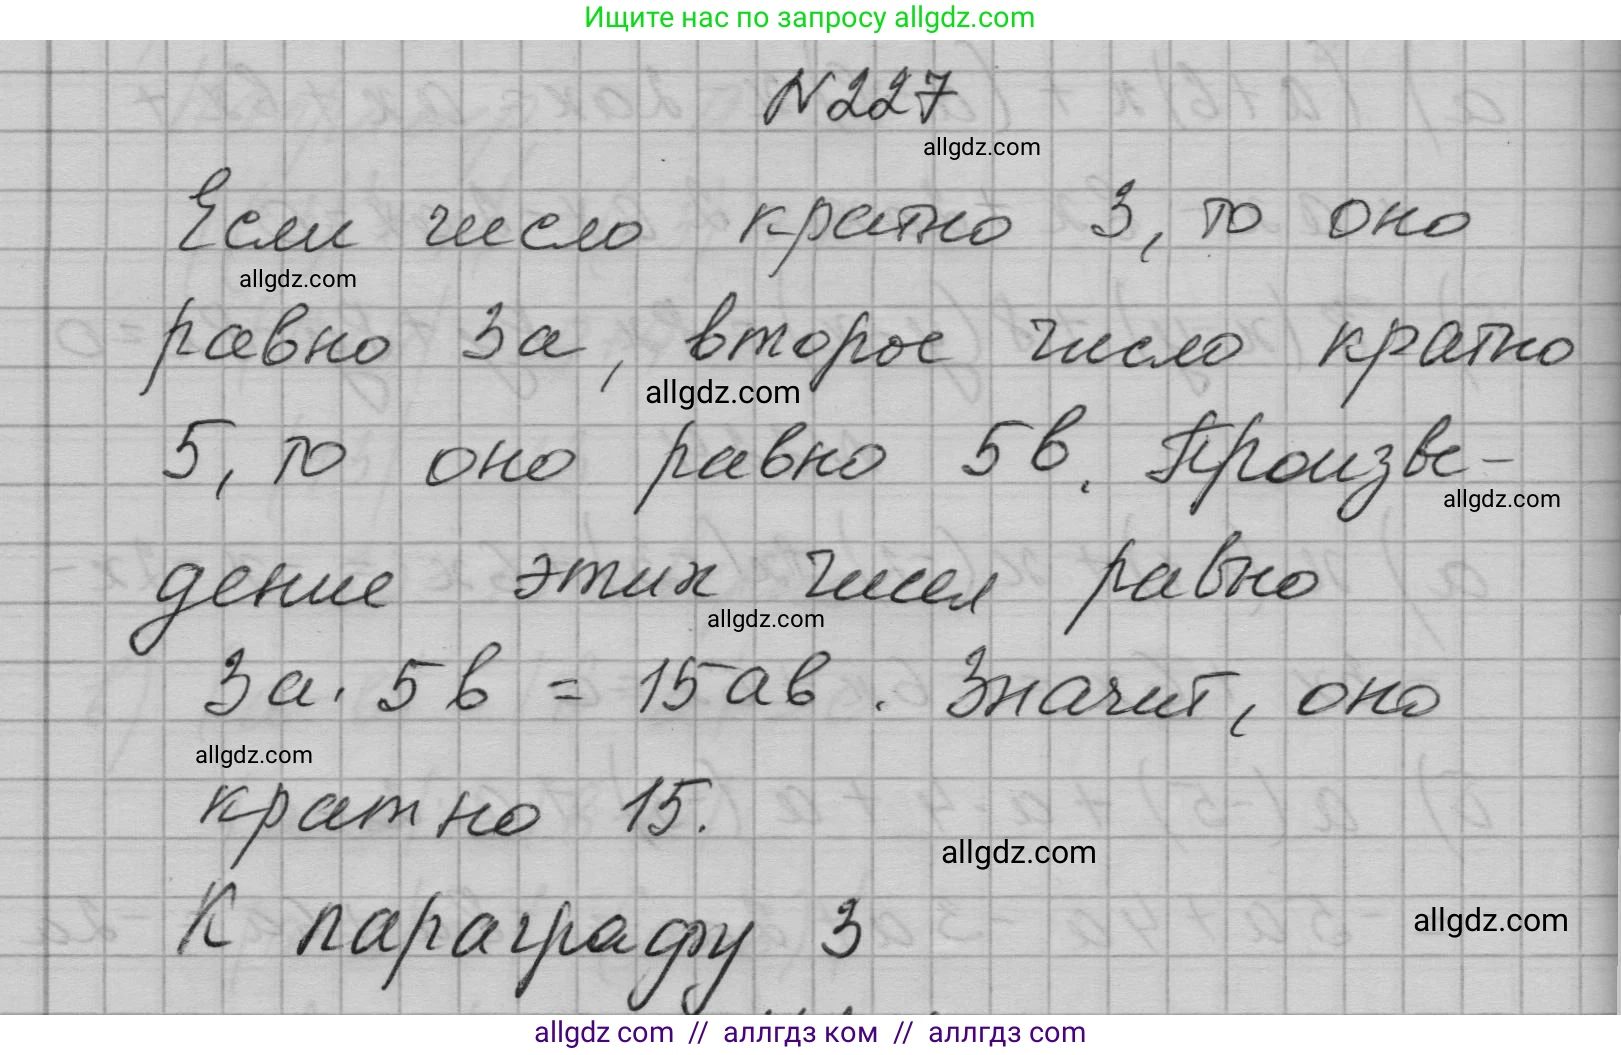 Ищите нас по запросу allgdz.com
N227
allgdz.com
Если число кратно 3, то оно
allgdz.com
равно 3а, второе число кратно
allgdz.com
5, то оно равно 5в. Произве-
allgdz.com
дение этих чисел равно
allgdz.com
3а · 5в = 15ав. Значит, оно
allgdz.com
кратно 15.
allgdz.com
К параграфу 3
allgdz.com
allgdz com // аллгдз ком // аллгдз com